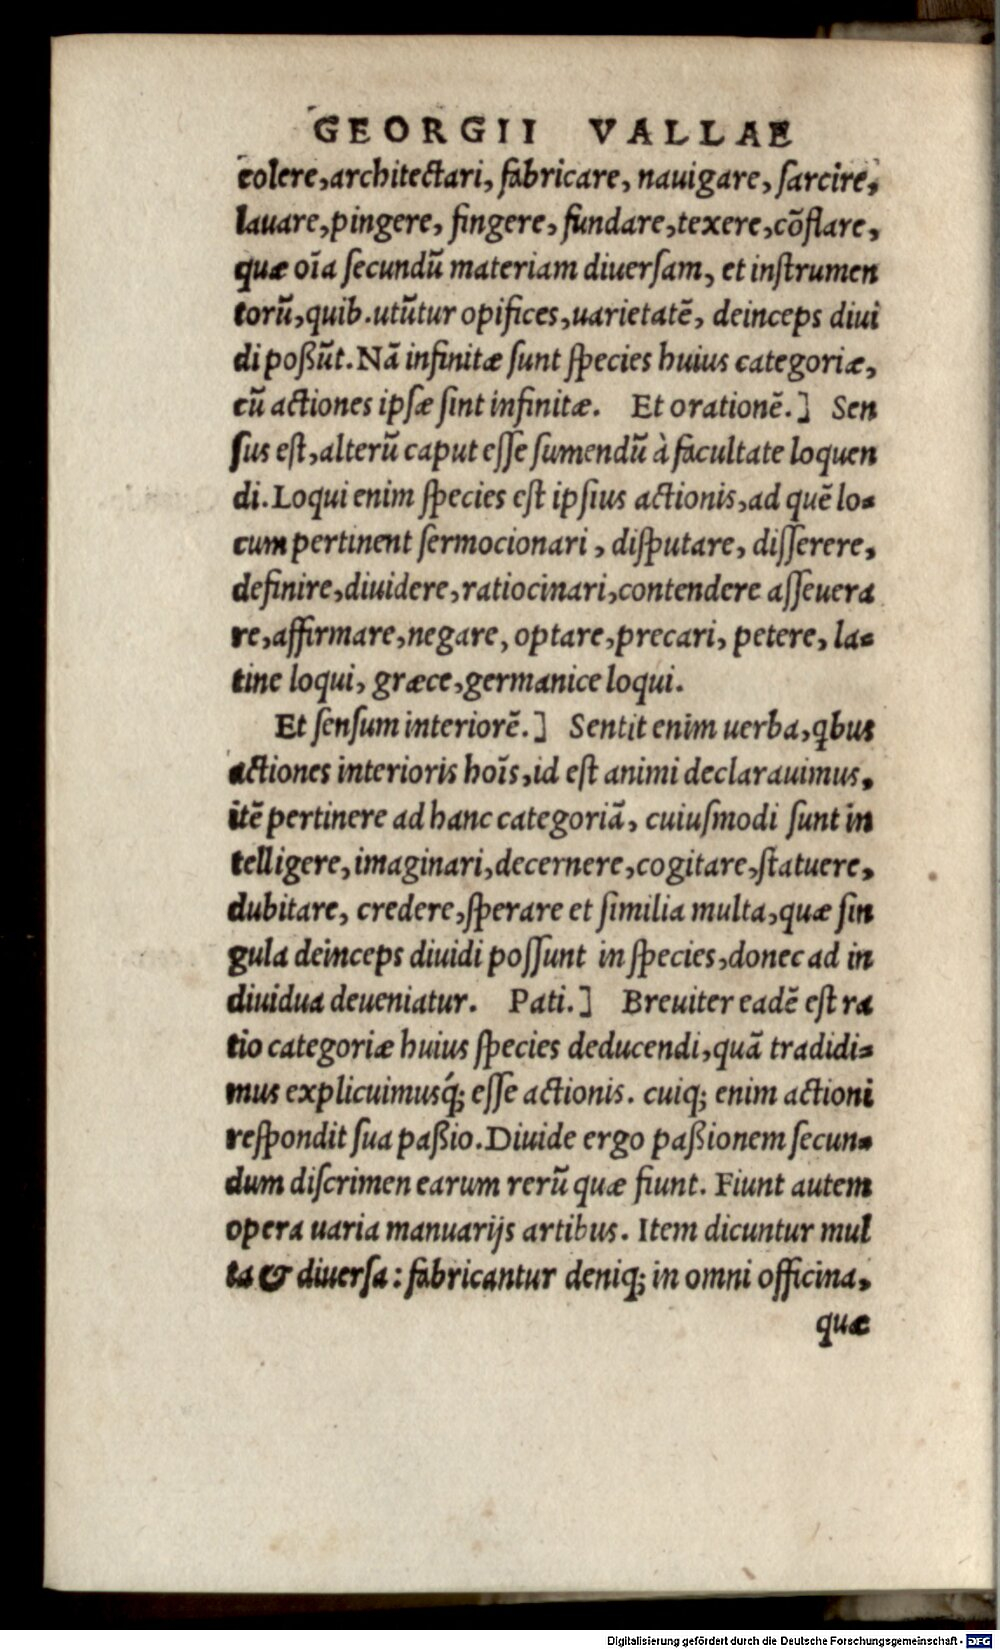 GEORGII VALLAE
colere, architectari, fabricare, nauigare, ſarcire,
lauare, pingere, fingere, fundare, texere, cõflare,
quæ oĩa ſecundũ materiam diuerſam, et inſtrumen
torũ, quib. utũtur opifices, uarietatẽ, deinceps diui
di poßũt. Nã infinitæ ſunt ſpecies huius categoriæ,
cũ actiones ipſæ ſint infinitæ. Et orationẽ.] Sen
ſus eſt, alterũ caput eſſe ſumendũ à facultate loquen
di. Loqui enim ſpecies eſt ipſius actionis, ad quẽ lo-
cum pertinent ſermocionari, diſputare, diſſerere,
definire, diuidere, ratiocinari, contendere aſſeuera
re, affirmare, negare, optare, precari, petere, la-
tine loqui, græce, germanice loqui.
Et ſenſum interiorẽ.] Sentit enim uerba, qbus
actiones interioris hoĩs, id eſt animi declarauimus,
itẽ pertinere ad hanc categoriã, cuiuſmodi ſunt in
telligere, imaginari, decernere, cogitare, ſtatuere,
dubitare, credere, ſperare et ſimilia multa, quæ ſin
gula deinceps diuidi poſſunt in ſpecies, donec ad in
diuidua deueniatur. Pati.] Breuiter eadẽ eſt ra
tio categoriæ huius ſpecies deducendi, quã tradidi-
mus explicuimusq́; eſſe actionis. cuiq; enim actioni
reſpondit ſua paßio. Diuide ergo paßionem ſecun-
dum diſcrimen earum rerũ quæ fiunt. Fiunt autem
opera uaria manuarijs artibus. Item dicuntur mul
ta & diuerſa: fabricantur deniq; in omni officina,
quæ
Digitalisierung gefördert durch die Deutsche Forschungsgemeinschaft - DFG